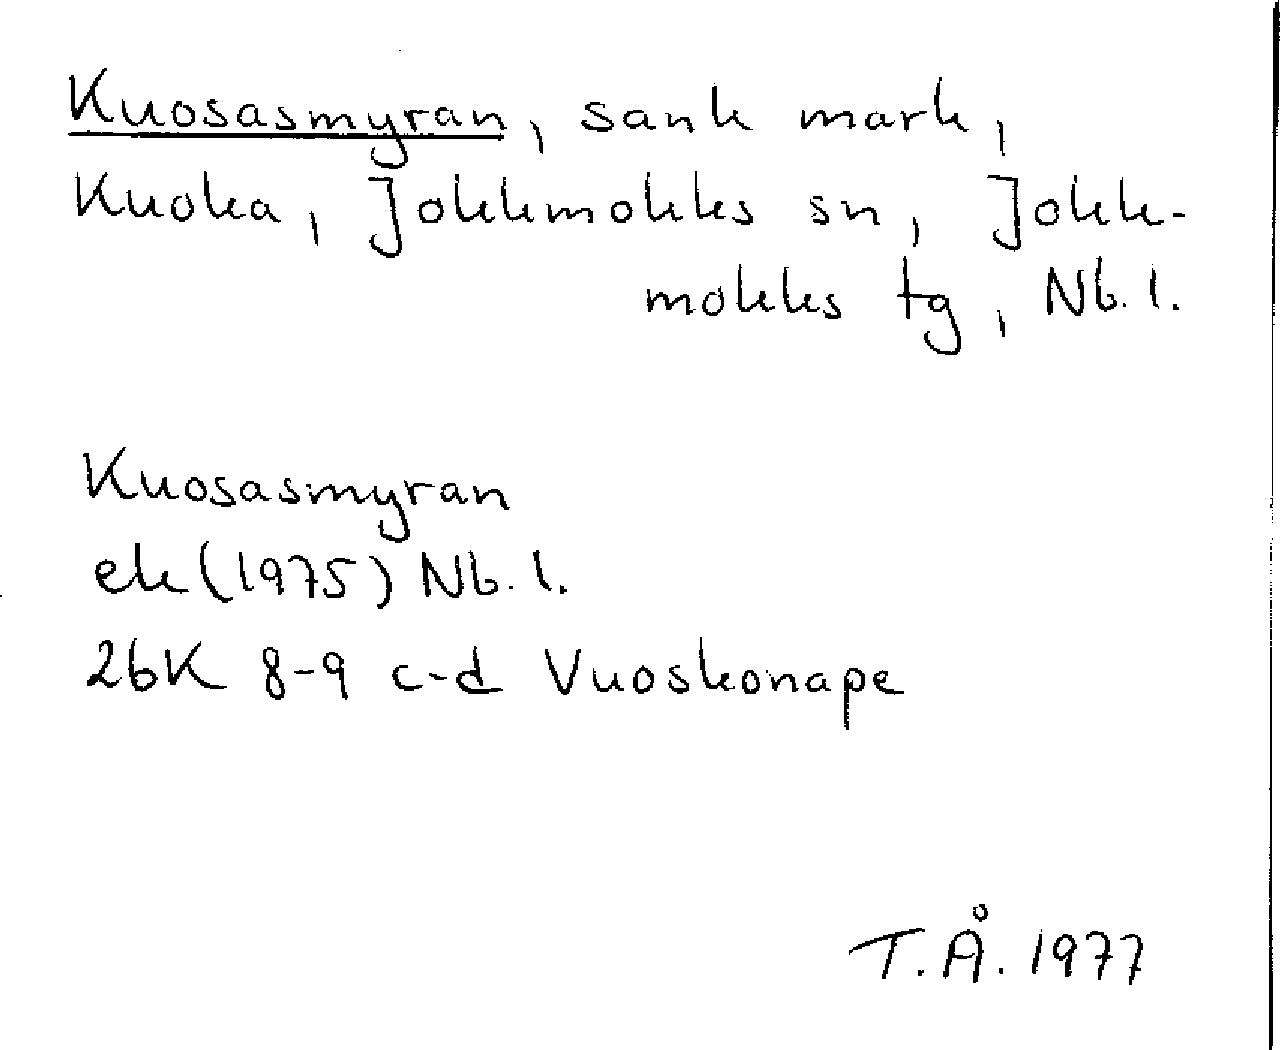 Kuosasmyran, sank mark,
Kuoka, Jokkmokks sn, Jokk-
mokks tg, Nb. l.
Kuosasmyran
ek (1975) Nb. l.
26K 8-9 c-d Vuoskonape
T.Å. 1977